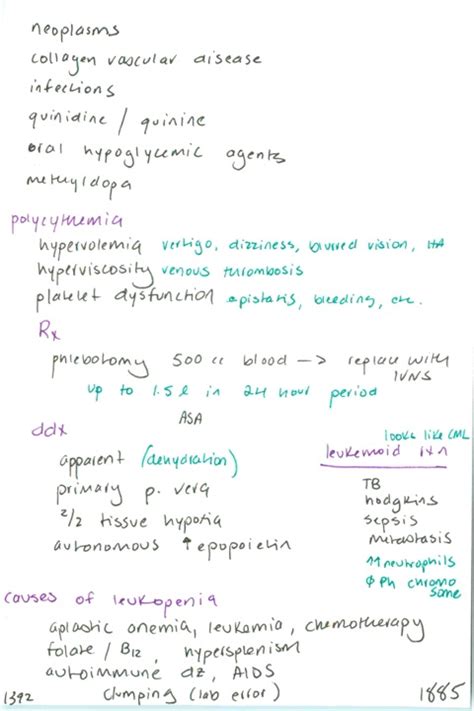 neoplasms
collagen vascular disease
infections
quinidine / quinine
oral hypoglycemic agents
methyldopa
polycythemia
hypervolemia vertigo, dizziness, blurred vision, HA
hyperviscosity venous thrombosis
platelet dysfunction epistaxis, bleeding, etc.
Rx
phlebotomy 500 cc blood —> replace with IVNS
up to 1.5 l in 24 hour period
ASA
ddx
apparent (dehydration)
primary p. vera
2/2 tissue hypoxia
autonomous ↑ epopoietin
looks like CML
leukemoid rxn
TB
hodgkins
sepsis
metastasis
↑↑ neutrophils
φ Ph chromo
some
causes of leukopenia
aplastic anemia, leukemia, chemotherapy
folate / B12, hypersplenism
autoimmune dz, AIDS
clumping (lab error)
1392
1885